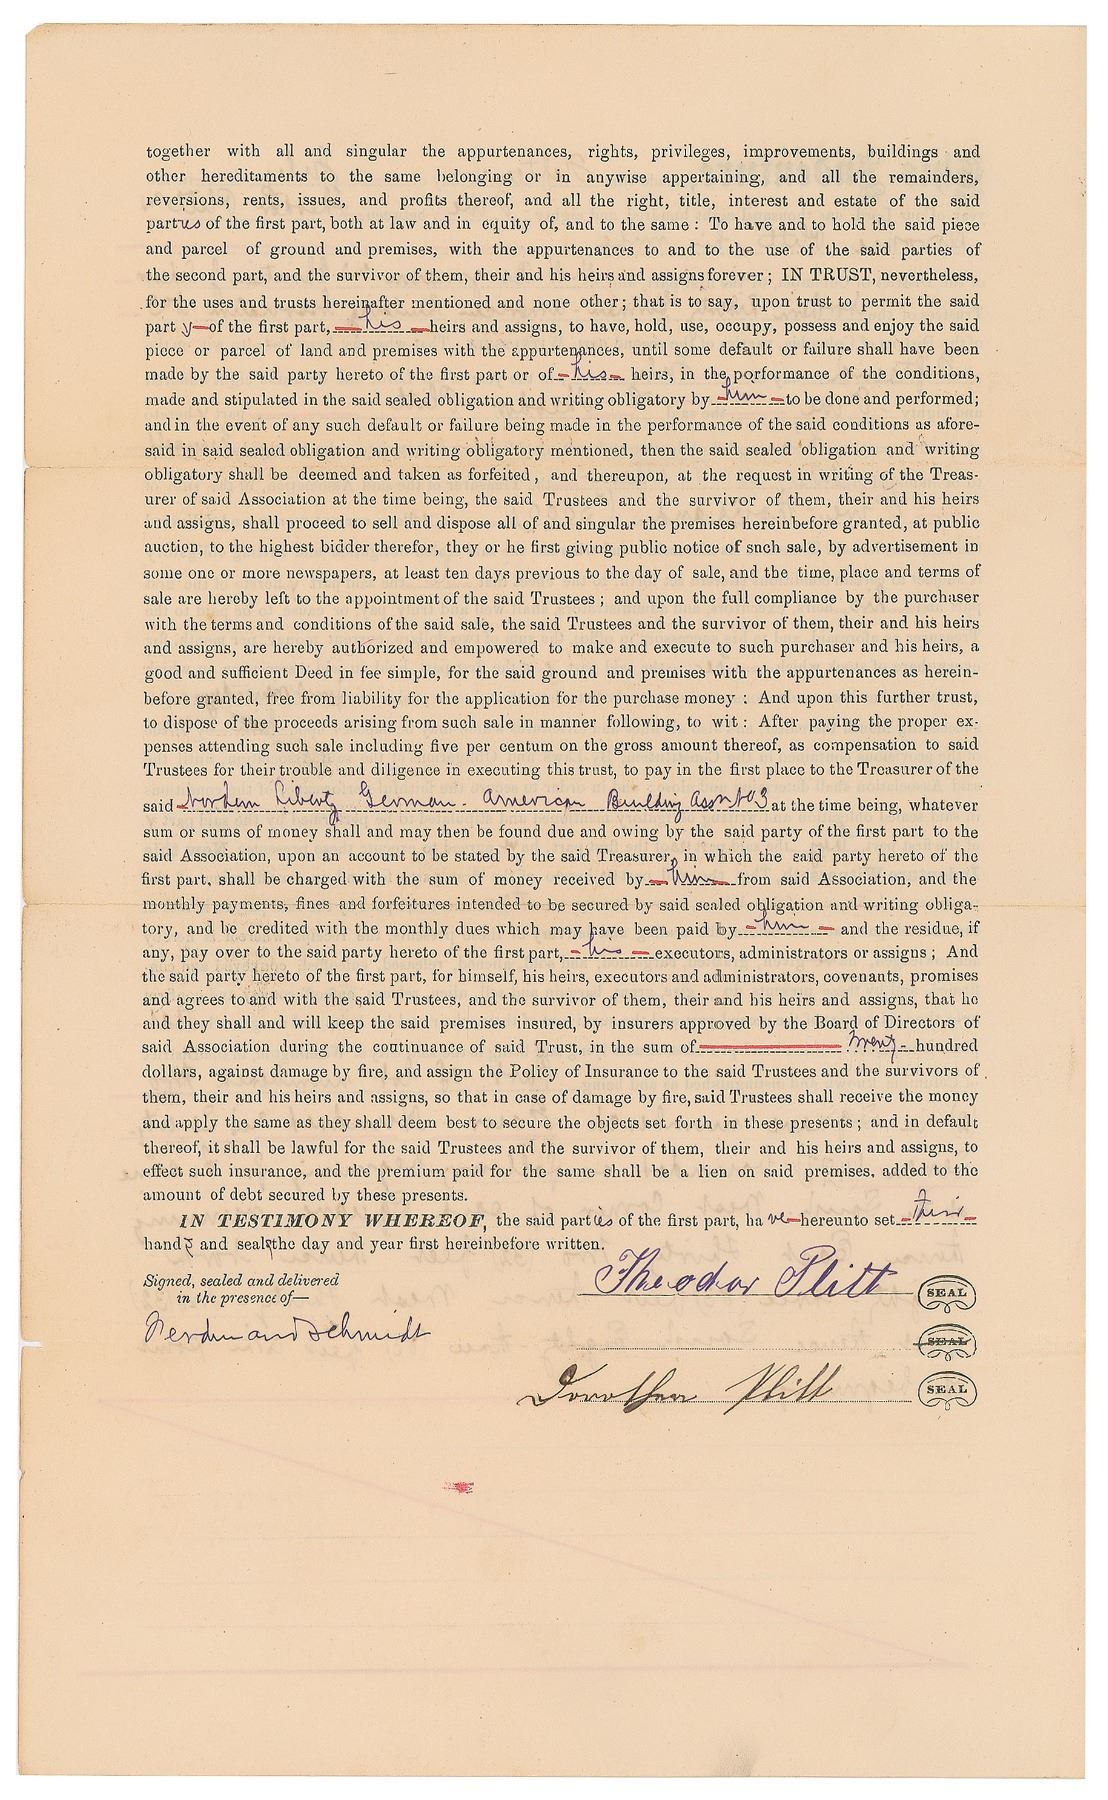 together with all and singular the appurtenances, rights, privileges, improvements, buildings and
other hereditaments to the same belonging or in anywise appertaining, and all the remainders,
reversions, rents, issues, and profits thereof, and all the right, title, interest and estate of the said
parties of the first part, both at law and in equity of, and to the same : To have and to hold the said piece
and parcel of ground and premises, with the appurtenances to and to the use of the said parties of
the second part, and the survivor of them, their and his heirs and assigns forever ; IN TRUST, nevertheless,
for the uses and trusts hereinafter mentioned and none other ; that is to say, upon trust to permit the said
part y of the first part, his heirs and assigns, to have, hold, use, occupy, possess and enjoy the said
piece or parcel of land and premises with the appurtenances, until some default or failure shall have been
made by the said party hereto of the first part or of his heirs, in the performance of the conditions,
made and stipulated in the said sealed obligation and writing obligatory by him to be done and performed;
and in the event of any such default or failure being made in the performance of the said conditions as afore-
said in said sealed obligation and writing obligatory mentioned, then the said sealed obligation and writing
obligatory shall be deemed and taken as forfeited, and thereupon, at the request in writing of the Treas-
urer of said Association at the time being, the said Trustees and the survivor of them, their and his heirs
and assigns, shall proceed to sell and dispose all of and singular the premises hereinbefore granted, at public
auction, to the highest bidder therefor, they or he first giving public notice of snch sale, by advertisement in
some one or more newspapers, at least ten days previous to the day of sale, and the time, place and terms of
sale are hereby left to the appointment of the said Trustees ; and upon the full compliance by the purchaser
with the terms and conditions of the said sale, the said Trustees and the survivor of them, their and his heirs
and assigns, are hereby authorized and empowered to make and execute to such purchaser and his heirs, a
good and sufficient Deed in fee simple, for the said ground and premises with the appurtenances as herein-
before granted, free from liability for the application for the purchase money : And upon this further trust,
to dispose of the proceeds arising from such sale in manner following, to wit : After paying the proper ex-
penses attending such sale including five per centum on the gross amount thereof, as compensation to said
Trustees for their trouble and diligence in executing this trust, to pay in the first place to the Treasurer of the
said Northern Liberty German-American Building Assn No 3 at the time being, whatever
sum or sums of money shall and may then be found due and owing by the said party of the first part to the
said Association, upon an account to be stated by the said Treasurer, in which the said party hereto of the
first part, shall be charged with the sum of money received by him from said Association, and the
monthly payments, fines and forfeitures intended to be secured by said sealed obligation and writing obliga-
tory, and be credited with the monthly dues which may have been paid by him and the residue, if
any, pay over to the said party hereto of the first part, his executors, administrators or assigns ; And
the said party hereto of the first part, for himself, his heirs, executors and administrators, covenants, promises
and agrees to and with the said Trustees, and the survivor of them, their and his heirs and assigns, that he
and they shall and will keep the said premises insured, by insurers approved by the Board of Directors of
said Association during the continuance of said Trust, in the sum of twenty- hundred
dollars, against damage by fire, and assign the Policy of Insurance to the said Trustees and the survivors of
them, their and his heirs and assigns, so that in case of damage by fire, said Trustees shall receive the money
and apply the same as they shall deem best to secure the objects set forth in these presents ; and in default
thereof, it shall be lawful for the said Trustees and the survivor of them, their and his heirs and assigns, to
effect such insurance, and the premium paid for the same shall be a lien on said premises, added to the
amount of debt secured by these presents.
IN TESTIMONY WHEREOF, the said parties of the first part, ha ve hereunto set their
hands and seals the day and year first hereinbefore written.
Signed, sealed and delivered
in the presence of—
Theodor Plitt SEAL
Ferdinand Schmidt
SEAL
Dorothea Plitt SEAL